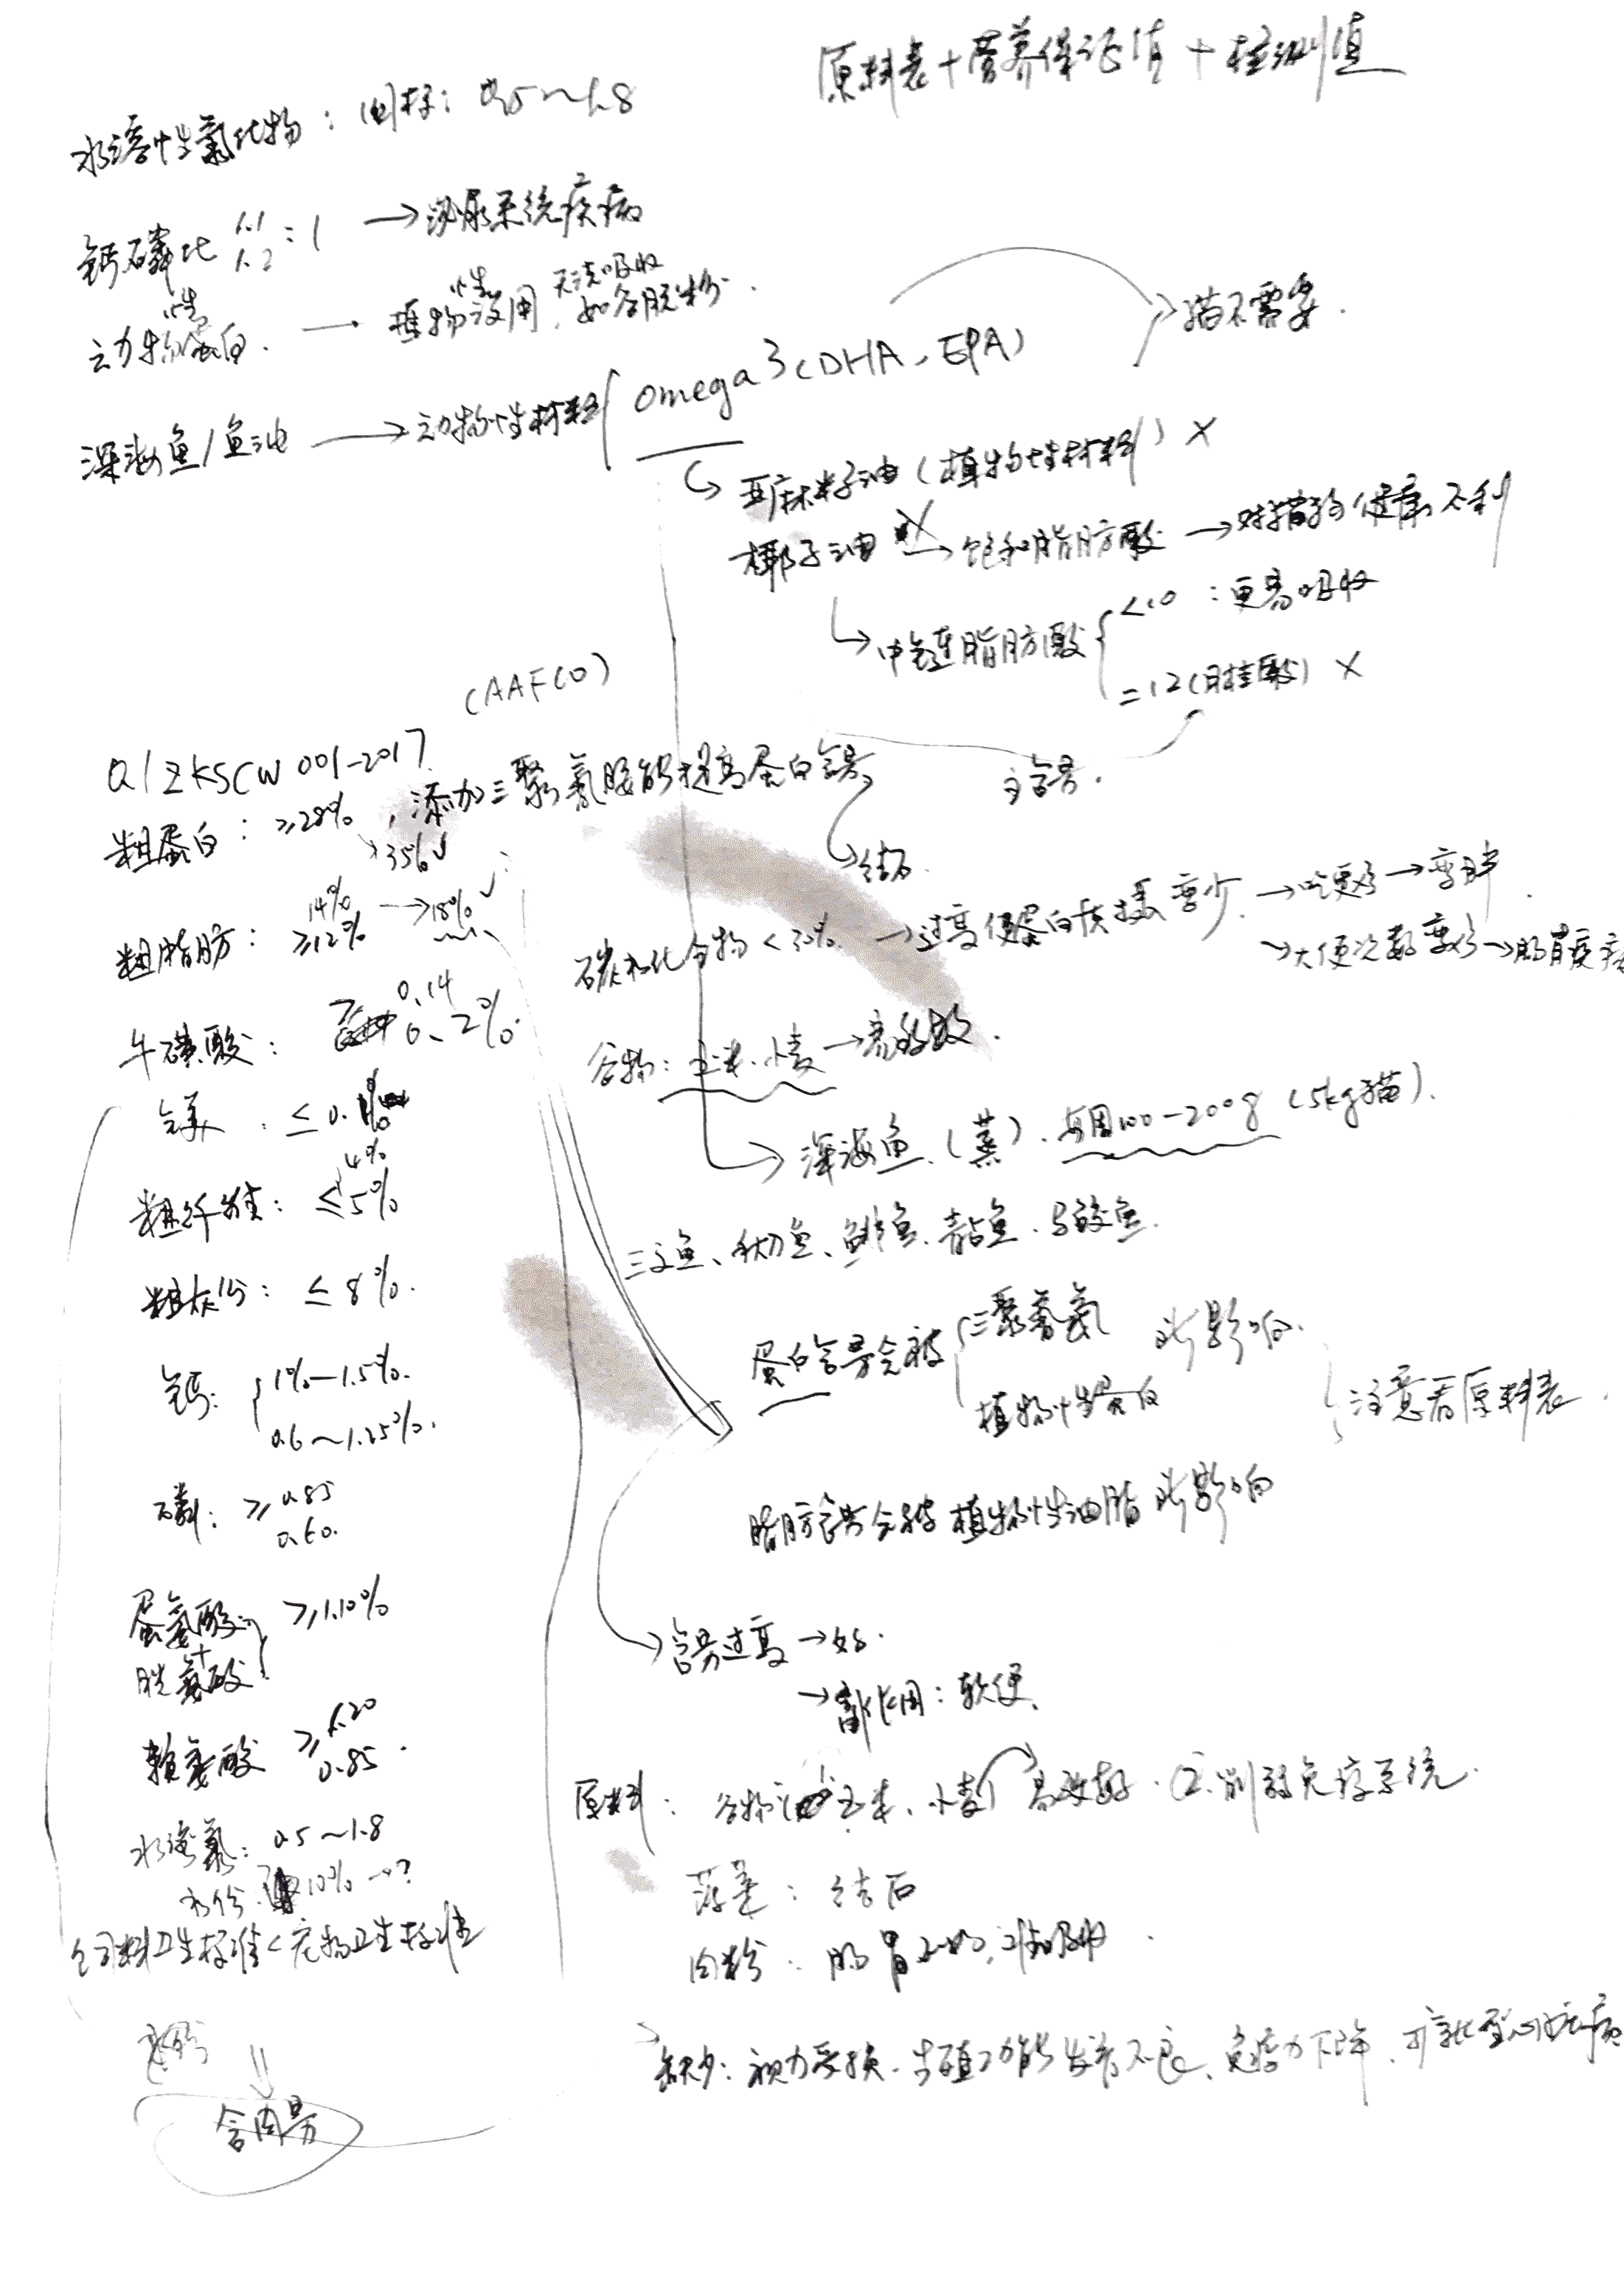 原料表+营养保证值+检测值
水溶性氯化物：国标：0.5～1.8
钙磷比 1.1 1.2 :1 →泌尿系统疾病
动物性蛋白. → 植物性没用，无法吸收 如谷朊粉.
猫不需要.
深海鱼/鱼油 → 动物性材料 omega 3 (DHA, EPA)
亚麻籽油（植物性材料）×
椰子油 × →饱和脂肪酸 →对猫狗健康不利
中链脂肪酸 <10 :更易吸收
=12(月桂酸) ×
主含量.
(AAFCO)
Q/ZKSCW 001-2017
粗蛋白：≥28%，添加三聚氰胺能提高蛋白含量
→35%√
结石.
粗脂肪：14% ≥12% →18% √
碳水化合物<30%. →过高使蛋白质摄 变少. →吃更多→变胖.
→大便次数变多→肠胃疾病
牛磺酸： ≥ 0.14 0.2%.
谷物：玉米.小麦→易致敏.
镁：≤0.1%
深海鱼.(蒸). 每周100-200g (5kg猫).
粗纤维：≤5% 4%
三文鱼、秋刀鱼、鲱鱼、青占鱼、马鲛鱼.
粗灰分：≤8%.
蛋白含量会被 三聚氰 所影响.
植物性蛋白
注意看原料表.
钙：1%—1.5%.
0.6～1.25%.
磷：≥0.85
0.60.
脂肪含量会被植物性油脂所影响
蛋氨酸 ≥1.10%
+
胱氨酸
含量过高→好.
→副作用：软便.
赖氨酸 ≥1.20
0.85.
原料：谷物 玉米、小麦 易致敏.②.削弱免疫系统.
水溶氯：0.5～1.8
水份. 10% →?
菠菜：结石
饲料卫生标准<宠物卫生标准
肉粉：肠胃不好,难吸收.
缺少：视力受损.生殖功能发育不良、免疫力下降、扩张型心脏病
含肉量